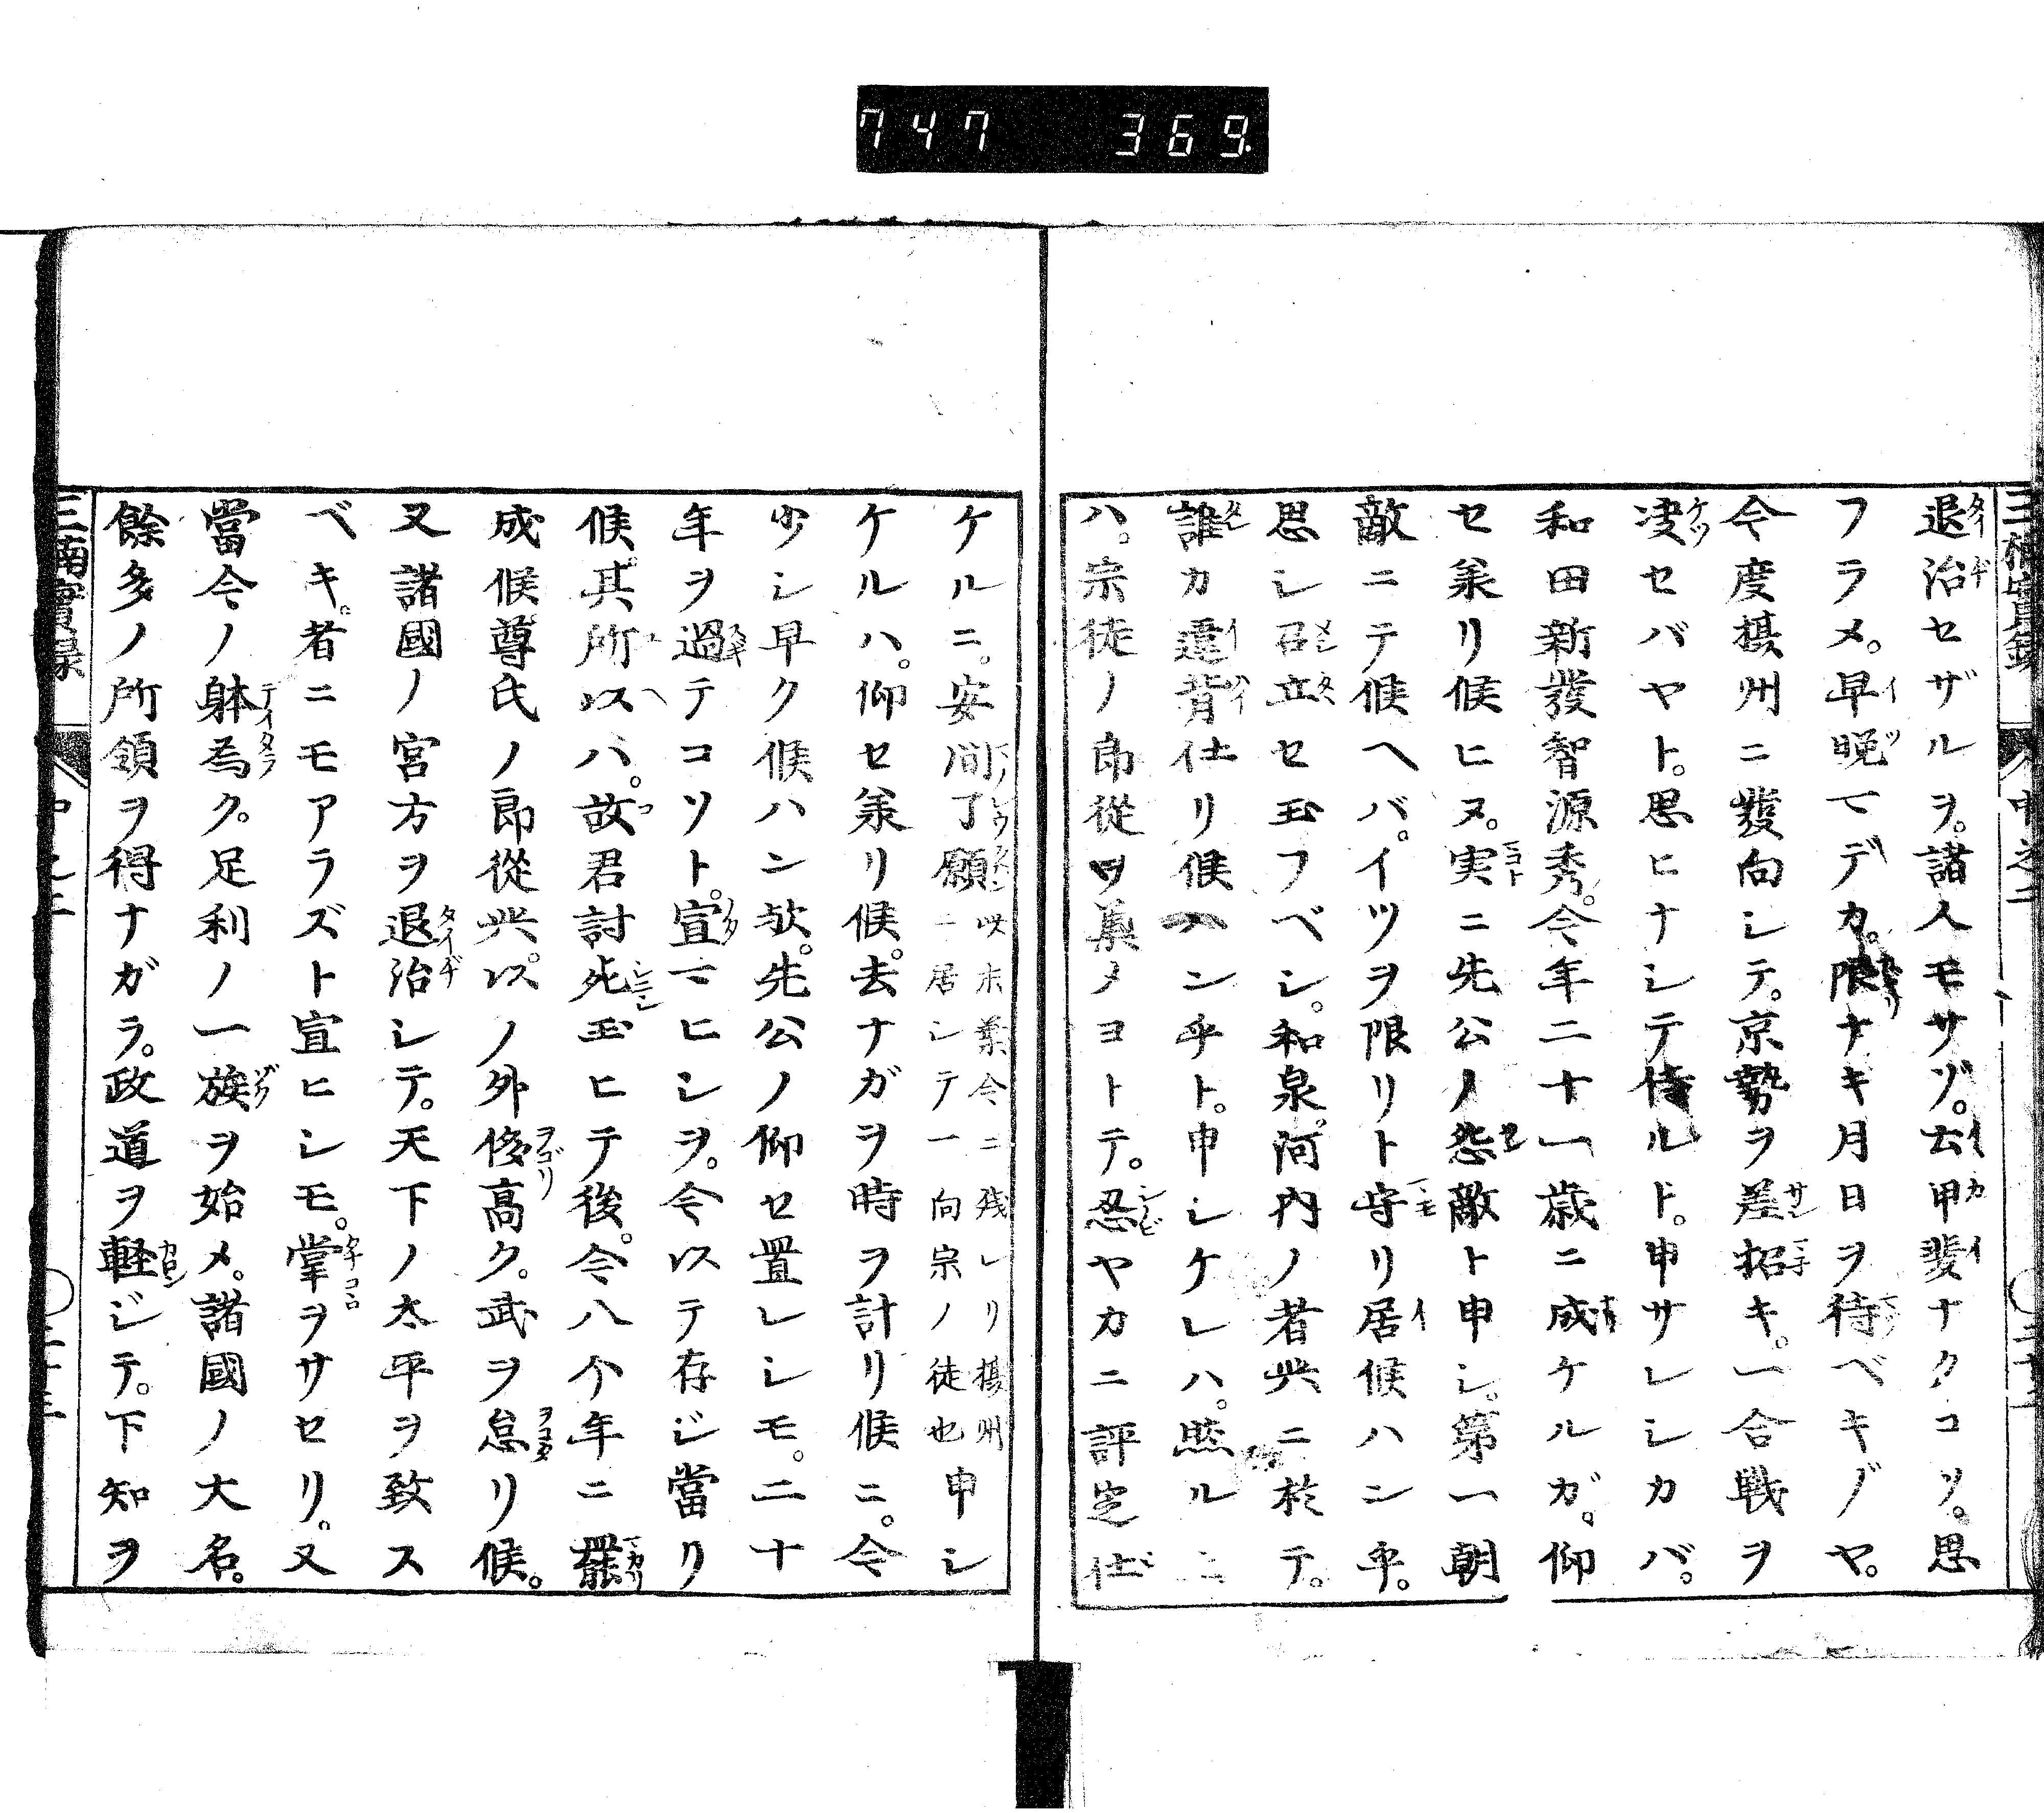 747 369
退治セザルヲ。諸人モサゾ。云甲斐ナクコソ。思
フラメ。早晩マデカ。限ナキ月日ヲ待ベキゾヤ。
今度摂州ニ發向シテ。京勢ヲ差招キ。一合戦ヲ
决セバヤト。思ヒナシテ侍ルト。申サレシカバ。
和田新發智源秀。今年二十一歳ニ成ケルガ。仰
セ羕リ候ヒヌ。実ニ先公ノ怨敵ト申シ。第一朝
敵ニテ候ヘバ。イツヲ限リト守リ居候ハン乎。
思シ召立セ玉フベシ。和泉。河内ノ者共ニ於テ。
誰カ違背仕リ候ハン乎ト。申シケレハ。然ルニ
ハ。宗徒ノ郎從ヲ集メヨトテ。忍ヤカニ評定仕
ケルニ。安間了願
此末葉今ニ残レリ摂州
ニ居シテ一向宗ノ徒也
申シ
ケルハ。仰セ羕リ候。去ナガヲ時ヲ計リ候ニ。今
少シ早ク候ハン欤。先公ノ仰セ置レシモ。二十
年ヲ過テコソト。宣マヒシヲ。今以テ存ジ當リ
候。其所以ハ。故君討死玉ヒテ後。今八个年ニ罷
成候尊氏ノ郎從共。以ノ外侈高ク。武ヲ怠リ候。
又諸國ノ宮方ヲ退治シテ。天下ノ太平ヲ致ス
ベキ。者ニモアラズト宣ヒシモ。掌ヲサセリ。又
當今ノ躰爲ク。足利ノ一族ヲ始メ。諸國ノ大名。
餘多ノ所領ヲ得ナガラ。政道ヲ軽ジテ。下知ヲ